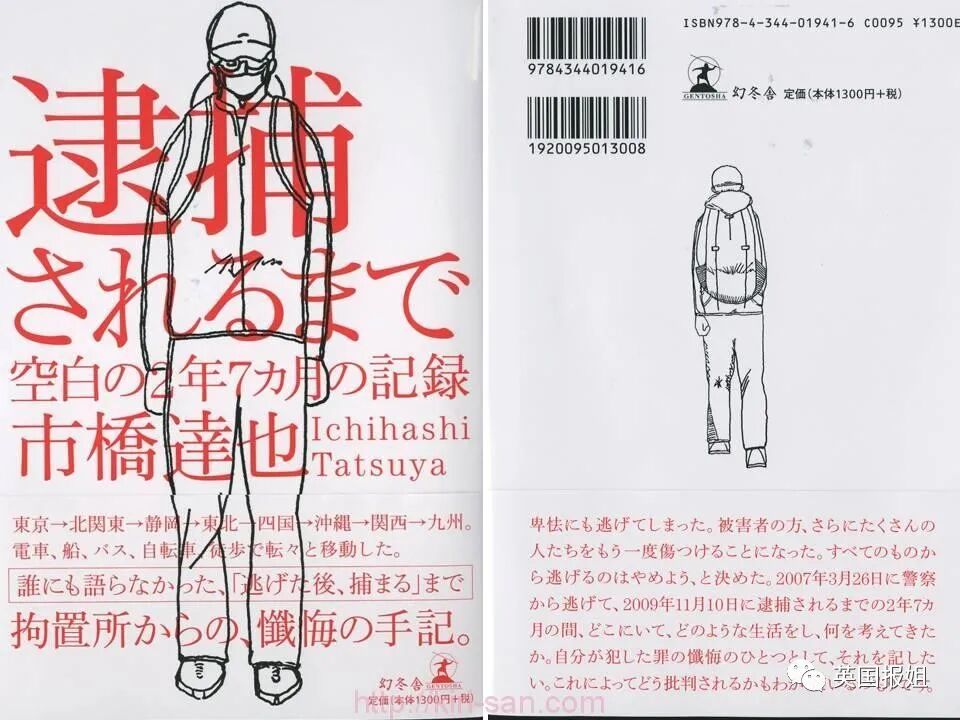 逮捕
されるまで
空白の2年7カ月の記録
市橋達也
Ichihashi
Tatsuya
東京→北関東→静岡→東北→四国→沖縄→関西→九州。
電車、船、バス、自転車、徒歩で転々と移動した。
誰にも語らなかった、「逃げた後、捕まる」まで
拘置所からの、懺悔の手記。
幻冬舎
GENTOSHA
定価(本体1300円+税)
ISBN978-4-344-01941-6 C0095 ¥1300E
9784344019416
GENTOSHA
幻冬舎 定価(本体1300円+税)
1920095013008
卑怯にも逃げてしまった。被害者の方、さらにたくさんの
人たちをもう一度傷つけることになった。すべてのものか
ら逃げるのはやめよう、と決めた。2007年3月26日に警察
から逃げて、2009年11月10日に逮捕されるまでの2年7カ
月の間、どこにいて、どのような生活をし、何を考えてきた
か。自分が犯した罪の懺悔のひとつとして、それを記した
い。これによってどう批判されるかもわか
英国报姐
http://kin-san.com